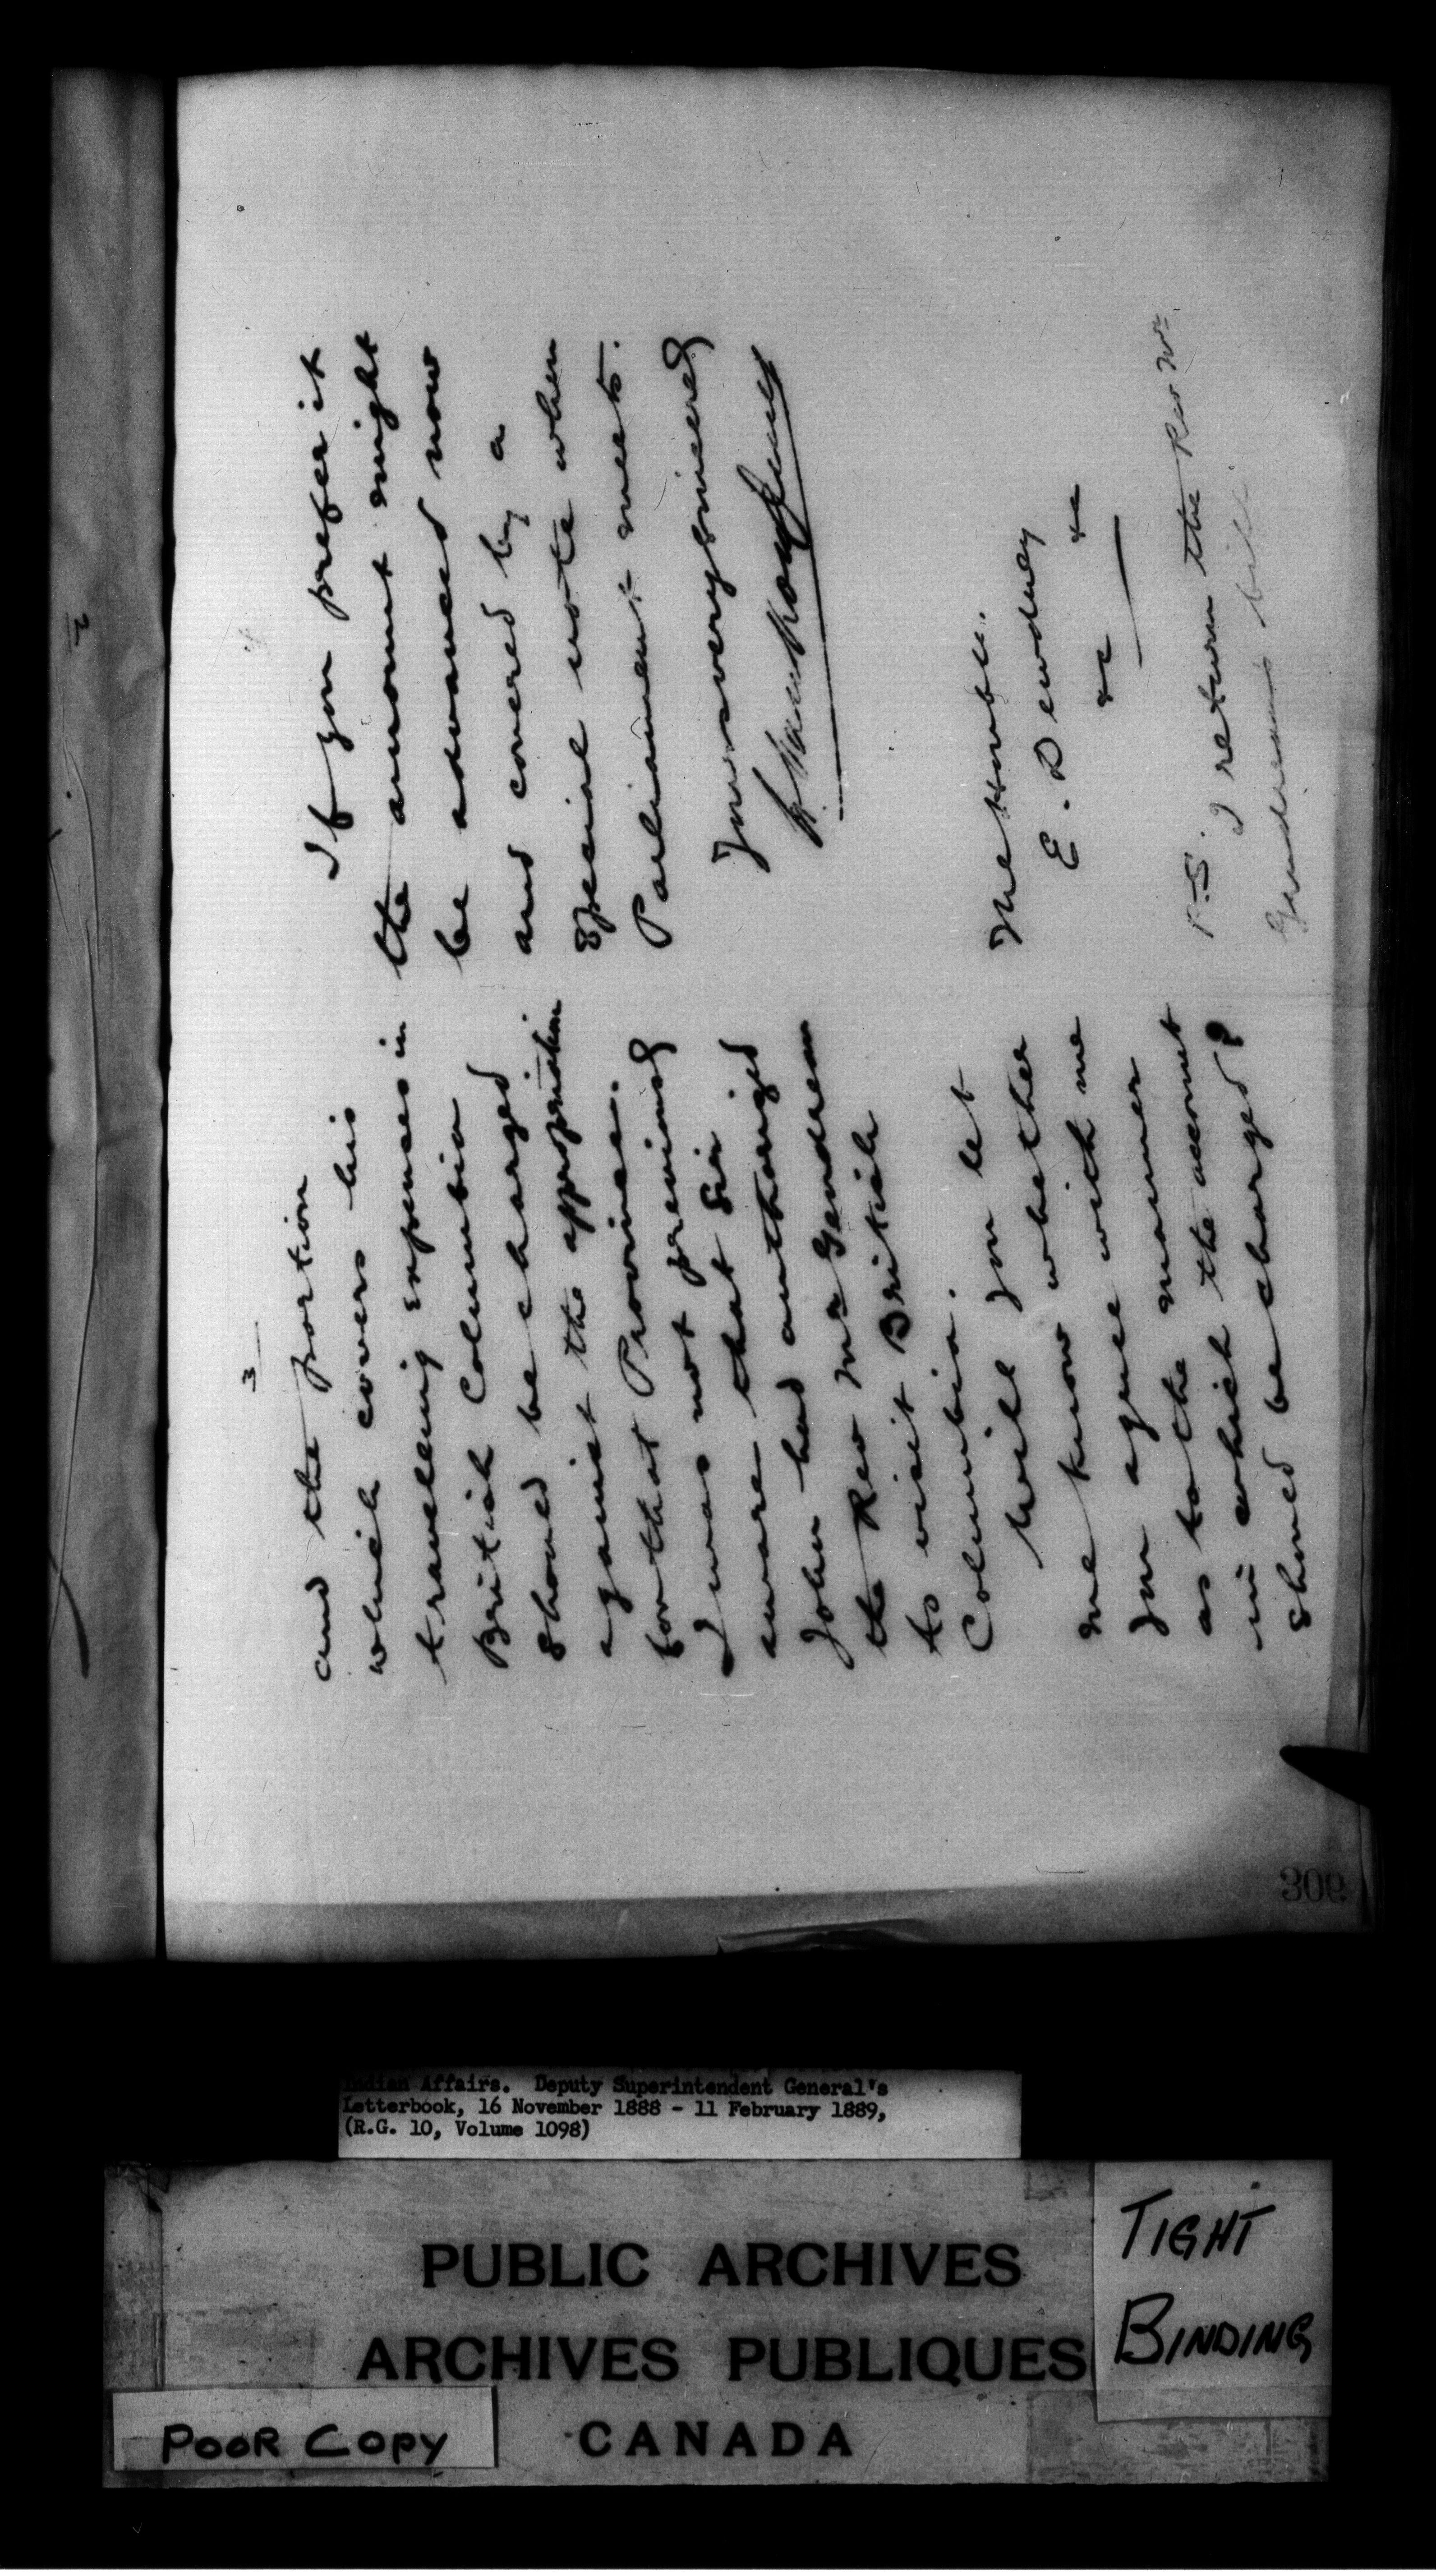 3
and the portion
which covers his
travelling expenses in
British Columbia
should be charged
against the appropriation
for that Province.
I was not previously
aware that Sir
John had authorized
the Rev Mr Gendreau
to visit British
Columbia.
Will you let
me know whether
you agree with me
as to the manner
in which the account
should be charged?
4
If you prefer it
the amount might
be advanced now
and covered by a
special vote when
Parliament meets.
Yours very sincerely
L. Vankoughnet
The Honble.
E. Dewdney
&c &c
P.S. I return the Rev Mr.
Gendreau's bill
2
309
Indian Affairs. Deputy Superintendent General's
Letterbook, 16 November 1888 - 11 February 1889,
(R.G. 10, Volume 1098)
PUBLIC ARCHIVES
ARCHIVES PUBLIQUES
CANADA
TIGHT
BINDING
POOR COPY